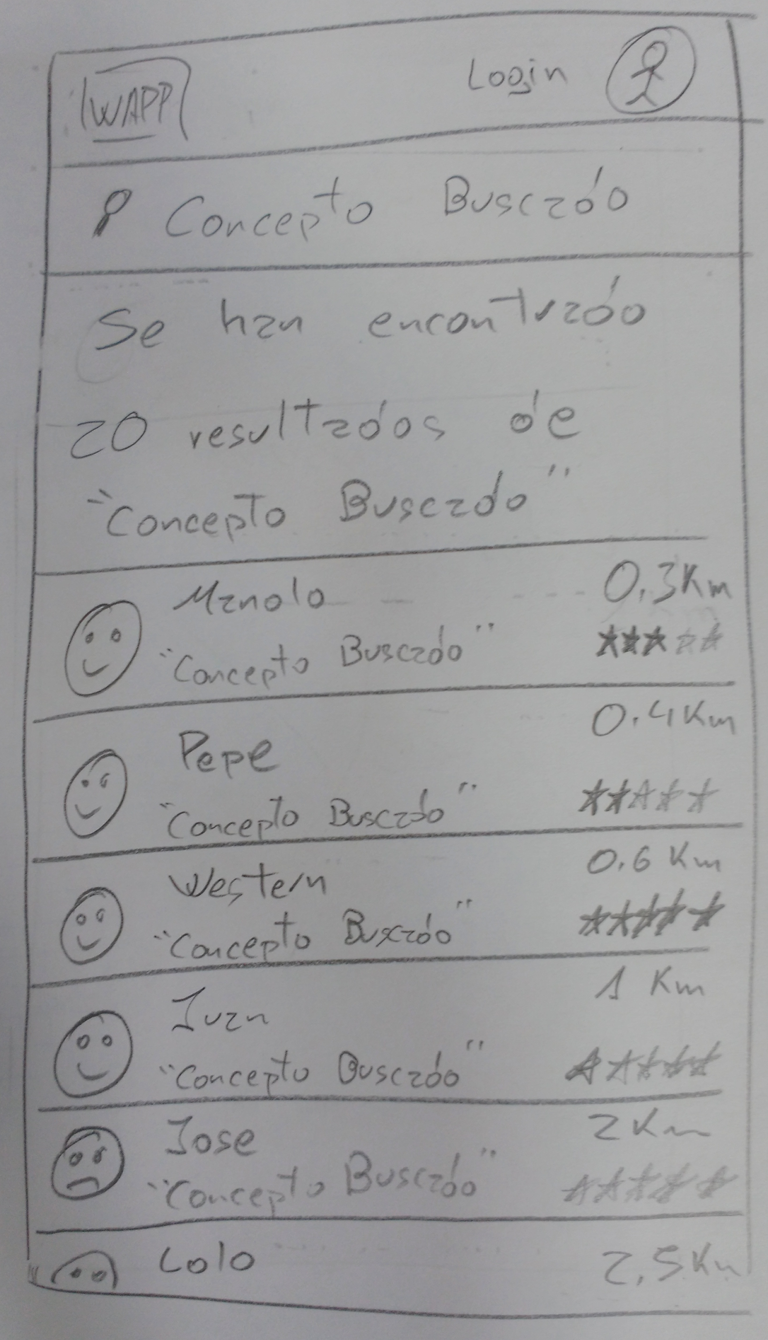 WAPP Login
Concepto Buscado
Se han encontrado
20 resultados de
"Concepto Buscado"
Manolo 0.3Km
"Concepto Buscado"
Pepe 0.4Km
"Concepto Buscado"
Western 0.6 Km
"Concepto Buscado"
Juan 1 Km
"Concepto Buscado"
Jose 2Km
"Concepto Buscado"
Lolo 2,5Km